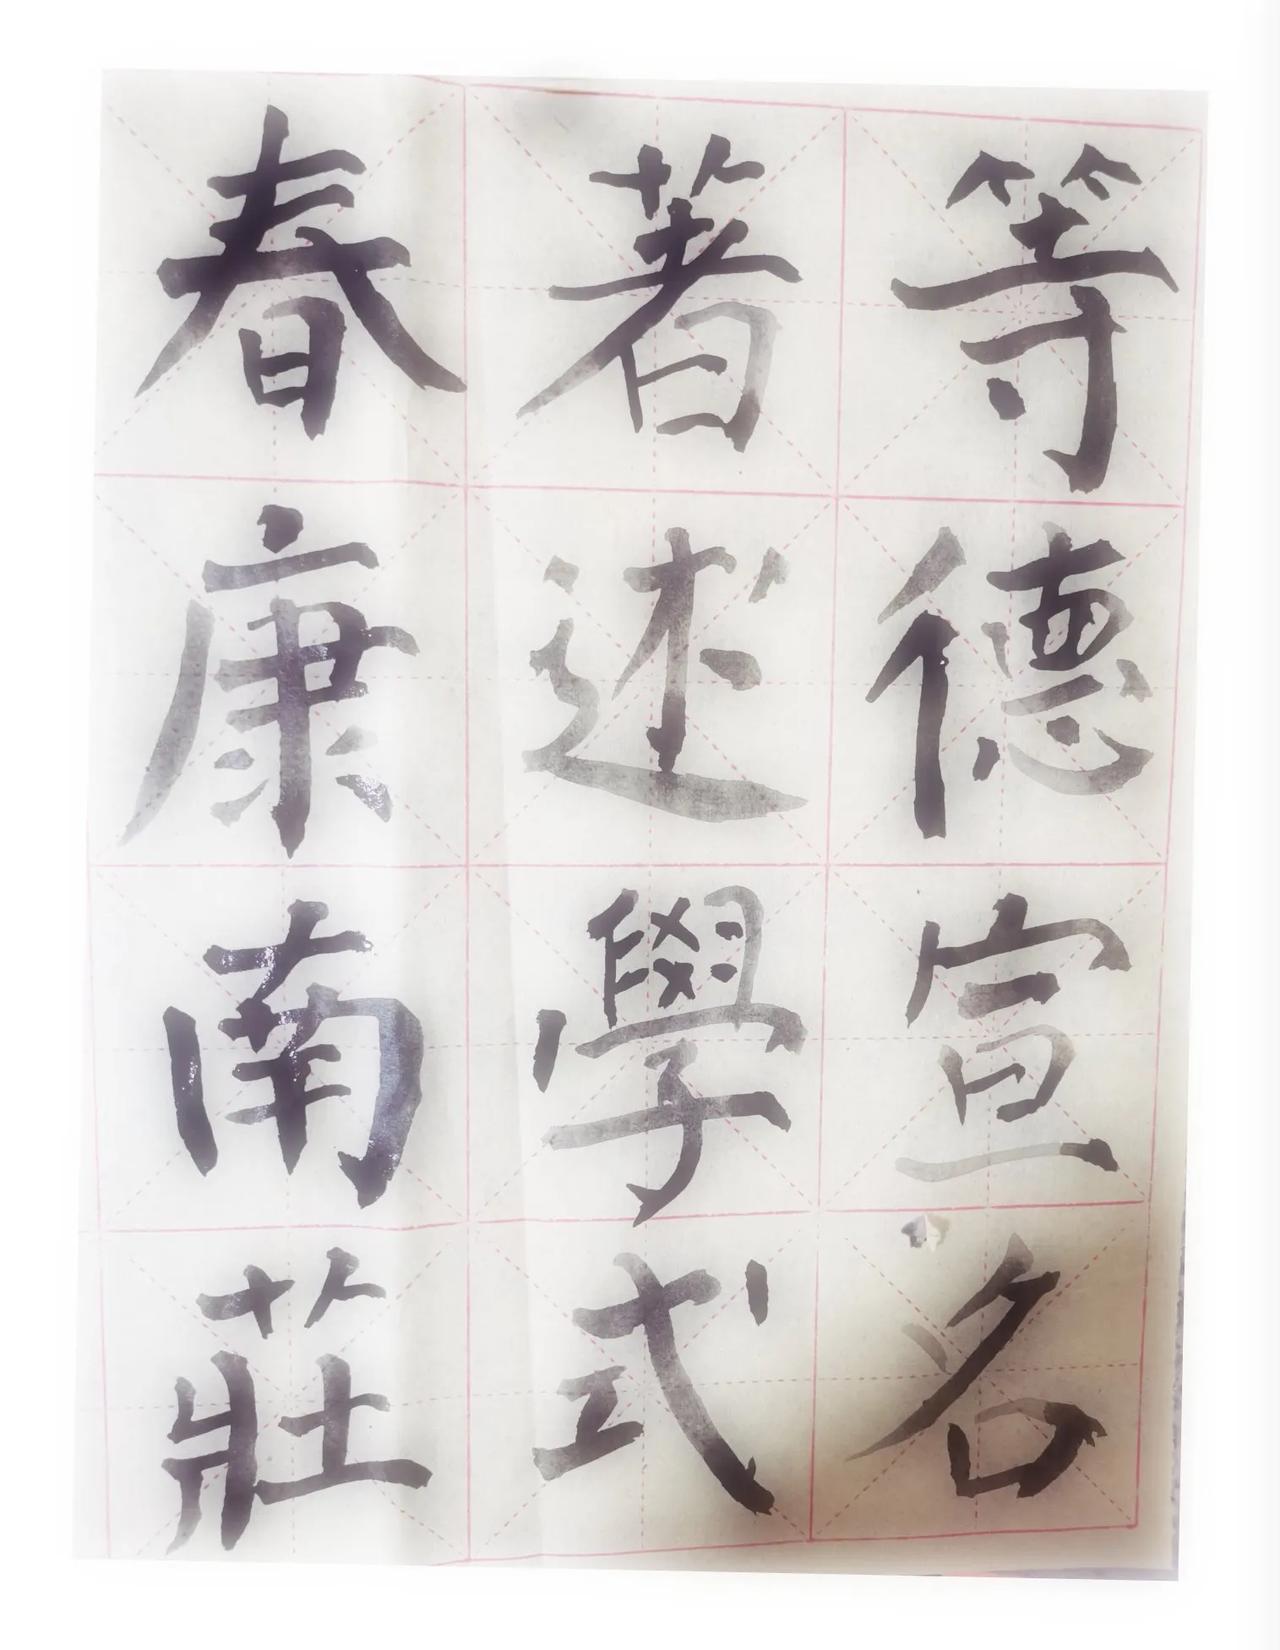 等德宣名
著述學式
春康南莊